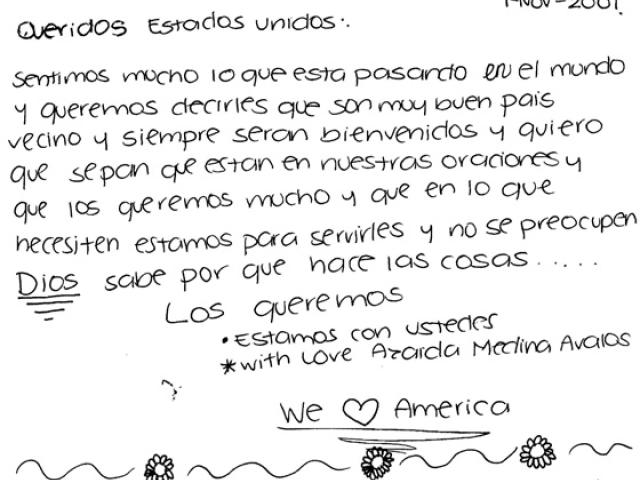 1-Nov-2001.
Queridos Estados Unidos:.
Sentimos mucho lo que esta pasando en el mundo
y queremos decirles que son muy buen pais
vecino y siempre seran bienvenidos y quiero
que sepan que estan en nuestras oraciones y
que los queremos mucho y que en lo que
necesiten estamos para servirles y no se preocupen
Dios sabe por que hace las cosas.....
Los queremos
• Estamos con ustedes
*with Love Azaida Medina Avalos
We ♡ America